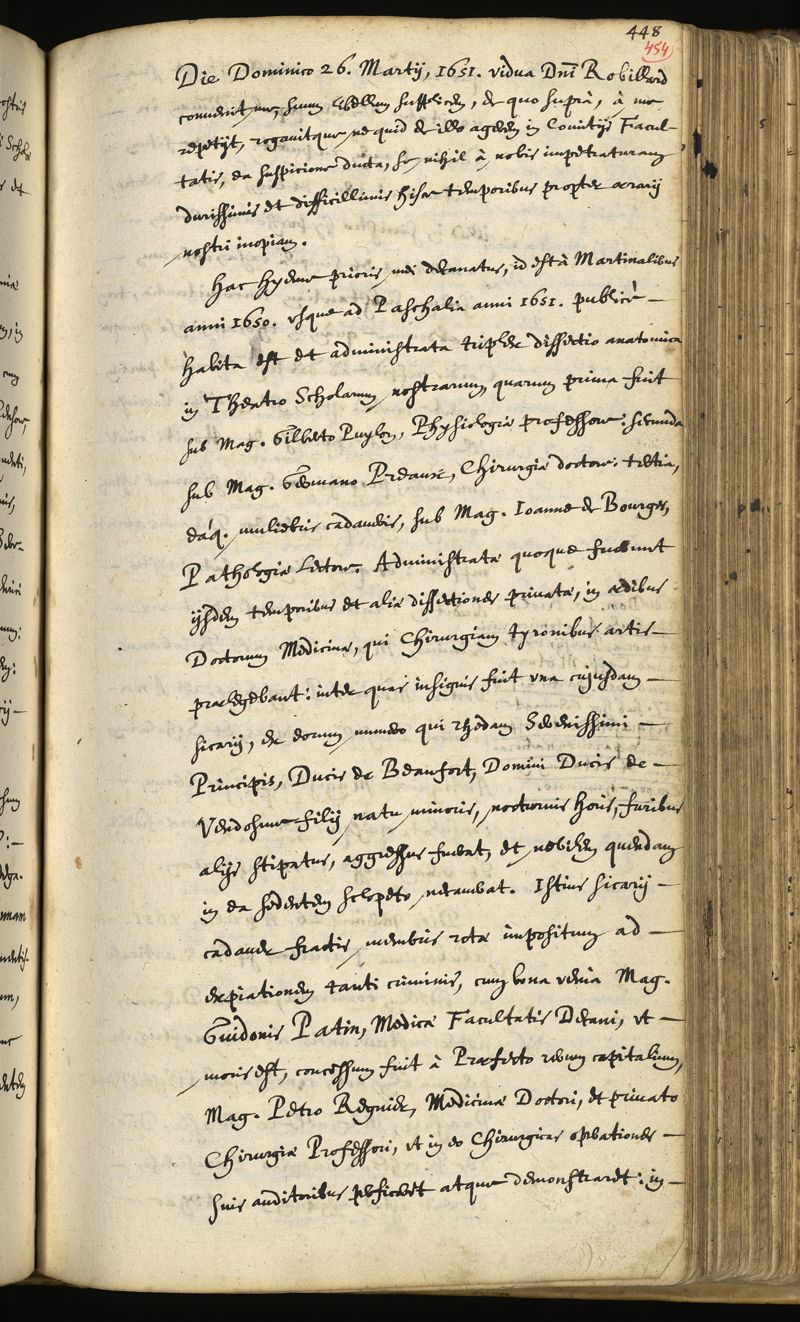 448
454
Die Dominico 26. Martij, 1651. vidua Dni Robillard
convenit me, suum libellum supplicem, de quo suprà, à me
repetijt, rogavitque ne quid de illo agerem in Comitijs Facul-
tatis, ea suspicione ducta, se nihil à nobis impetraturam
durissimis et difficillimis hisce temporibus propter aerarij
nostri inopiam.
Hac hyeme prioris mei decanatus, id est à Martinalibus
anni 1650. usque ad Paschalia anni 1651. publicè —
habita est et administrata triplex dissectio anatomica
in Theatro Scholarum nostrarum, quarum prima fuit
sub Mag. Gilberto Puylon, Physiologiae professore: secunda
sub Mag. Germano Preaux, Chirurgiae doctore: tertia,
eáq. muliebris cadaveris, sub Mag. Ioanne de Bourges,
Pathologiae Lectore. Administratae quoque fuerunt
ijsdem temporibus et aliae dissectiones privatae, in aedibus
Doctorum Medicinae, qui Chirurgiam tyronibus artis —
praelegebant: inter quas insignis fuit una cujusdam —
sicarij, ex eorum numero qui rhedam Serenissimi —
Principis, Ducis de Beaufort, Domini Ducis de —
Vendosme filij natu minoris, nocturnis horis, furibus
alijs stipatus, aggressus fuerat, et nobilem quendam
in ea sedentem sclopeto necaverat. Istius sicarij —
cadaver fractis membris rotae impositum ad —
expiationem tanti criminis, cum bona venia Mag.
Guidonis Patin, Medicae Facultatis Decani, ut —
moris est, concessum fuit à Praefecto rerum capitalium,
Mag. Petro Regnier, Medicinae Doctori, et privato
Chirurgiae Professori, ut in eo Chirurgicas operationes —
suis auditoribus perficeret atque demonstraret: in —